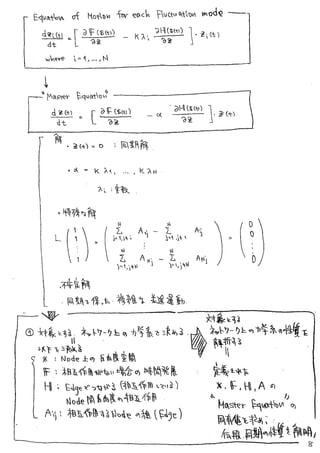 Equation of Motion for each Fluctuation mode
dzᵢ(t)/dt = [∂F(s(t))/∂x − Kλᵢ ∂H(s(t))/∂x]・zᵢ(t)
where i=1,...,N
"Master Equation"
dz(t)/dt = [∂F(s(t))/∂x − α ∂H(s(t))/∂x]・z(t)
解
・z(t)=0 : 同期解
・α = Kλ₁, ..., KλN
λᵢ : 実数
・特殊な解
L (1 1 ⋮ 1) = (Σ A₁ⱼ − Σ A₁ⱼ ⋮ Σ ANⱼ − Σ ANⱼ) = (0 0 ⋮ 0)
・不安定解
同期を保った 複雑な
① 対象とする ネットワーク上の力学系で決める
以下を決める
x : Node上の 自由度空間
F : 相互作用がない場合の時間発展
H : Edgeでつながる (相互作用している)
Node間自由度の相互作用
Aᵢⱼ : 相互作用するNodeの組 (Edge)
対象とする
ネットワーク上の力学系の性質を
解析する
=
定義された
x, F, H, A の
"Master Equation" の
固有値を求め,
同期の性質を解明
8